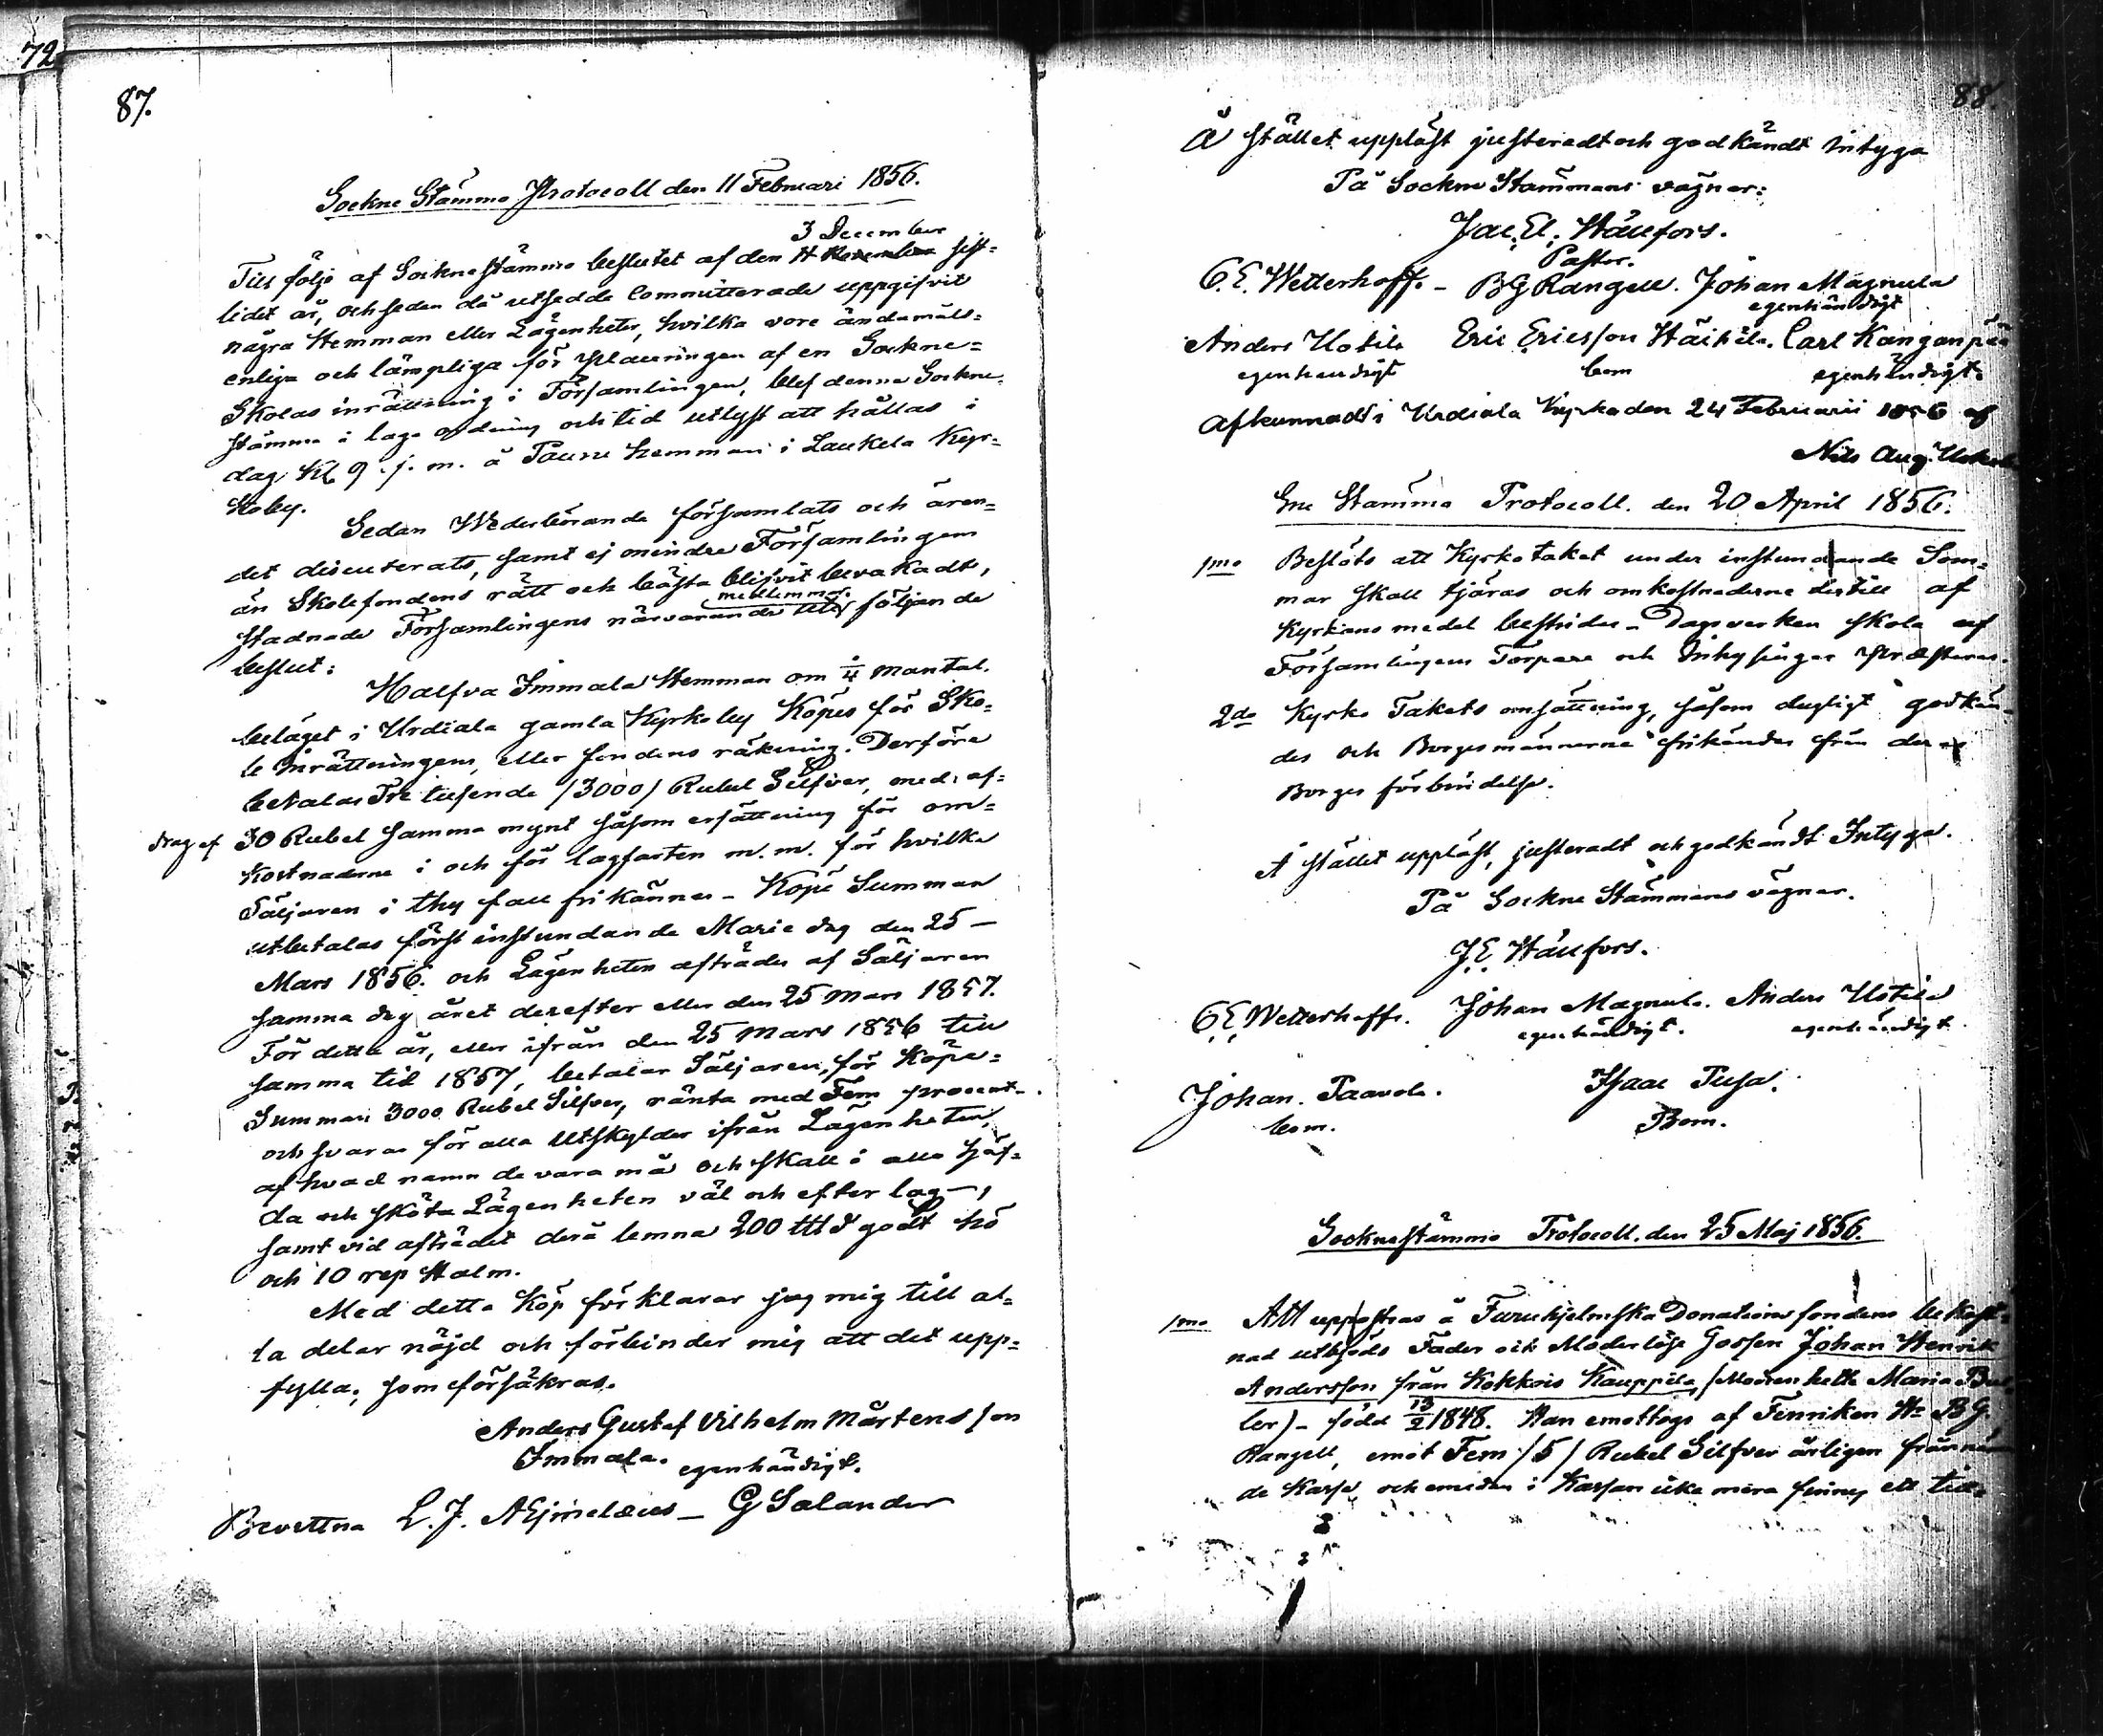 72.
87.
Sockne Stämmo Protocoll den 11 Februari 1856.
3 December
Till följe af Socknestämmo beslutet af den 4 November sist-
lidet år, och sedan då utsedde Committerade uppgifvit
några Hemman eller Lägenheter, hvilka vore ändamåls-
enliga och lämpliga för placeringen af en Sockne-
Skolas inrättning i Församlingen, blef denna Sockne-
stämma i laga ordning och tid utlyst att hållas i
dag Kl. 9 f. m. å Paunu hemman i Laukela Kyr-
koby.
Sedan Wederbörande församlats och ären-
det discuterats, samt ej mindre Församlingens
än Skolefondens rätt och bästa blifvit bevakadt,
medlemmar
stadnade Församlingens närvarande till följande
beslut:
Halfva Immala Hemman om 1/4 mantal.
beläget i Urdiala gamla Kyrkoby Köpes för Sko-
le Inrättningens, eller fondens räkning. Derföre
betalas Tre tusende /3000/ Rubel Silfver, med af-
drag af 30 Rubel samma mynt såsom ersättning för om-
kostnaderne i och för lagfarten m. m. för hvilka
Säljaren i thy fall frikännes - Köpe Summan
utbetalas först instundande Marie dag den 25 -
Mars 1856. och Lägenheten afträdes af Säljaren
samma dag året derefter eller den 25 Mars 1857.
För detta år, eller ifrån den 25 Mars 1856 till
samma tid 1857, betalar Säljaren, för Köpe-
Summan 3000 Rubel Silfver, ränta med Fem procent
och svarar för alla Utskylder ifrån Lägenheten,
af hvad namn de vara må och skall i allo häf-
da och sköta Lägenheten väl och efter lag -,
samt vid afträdet derå lemna 200 ttt godt hö
och 10 rep Halm.
Med detta Köp förklarar jag mig till al-
la delar nöjd och förbinder mig att det upp-
fylla, som försäkras.
Anders Gustaf Vilhelm Mårtensson
Immala. egenhändigt.
Bevittna L. J. Ajmelæus - G Salander
88.
Å stället uppläst justeradt och godkändt intyga
På Sockne Stämmans vägnar:
Jac. El. Hällfors.
Pastor.
C. E. Wetterhoff. - B G Rangell. Johan Magnula
egenhändigt
Anders Uotila Eric Ericsson Häihälä. Carl Kanganpää
egenhändigt bom egenhändigt.
Afkunnadt i Urdiala Kyrka den 24 Februarii 1856 af
Nils Aug.
Sne Stämmo Protocoll. den 20 April 1856.
1mo Beslöts att Kyrkotaket under instundande Som-
mar skall tjäras och omkostnaderne dertill af
Kyrkans medel bestrides - Dagsverken skola af
Församlingens Torpare och Inhysingar præsteras.
2do Kyrko Takets omsättning, såsom dugligt godkän-
des och Borgesmännerne frikändes från deras
Borges förbindelse.
Å stället uppläst, justeradt och godkändt Intyga.
På Sockne Stämmans vägnar.
J. E. Hällfors.
C E Wetterhoff. Johan Magnula. Anders Uotila
egenhändigt. egenhändigt
Johan. Paavola. Isaac Pusa.
bom. Bom.
Socknestämmo Protocoll. den 25 Maj 1856.
1mo Att uppfostras å Furuhjelmska Donations fondens bekost-
nad utbjöds Fader och Moderlöse Gossen Johan Henrik
Andersson från Kokkois Kauppila, /Modren hette Maria
ler) - född 13/2 1848. Han emottogs af Fenriken Hr B G.
Rangell, emot Fem /5/ Rubel Silfver årligen från
de Kassa, och emedan i Kassan icke mera finnes ett till-